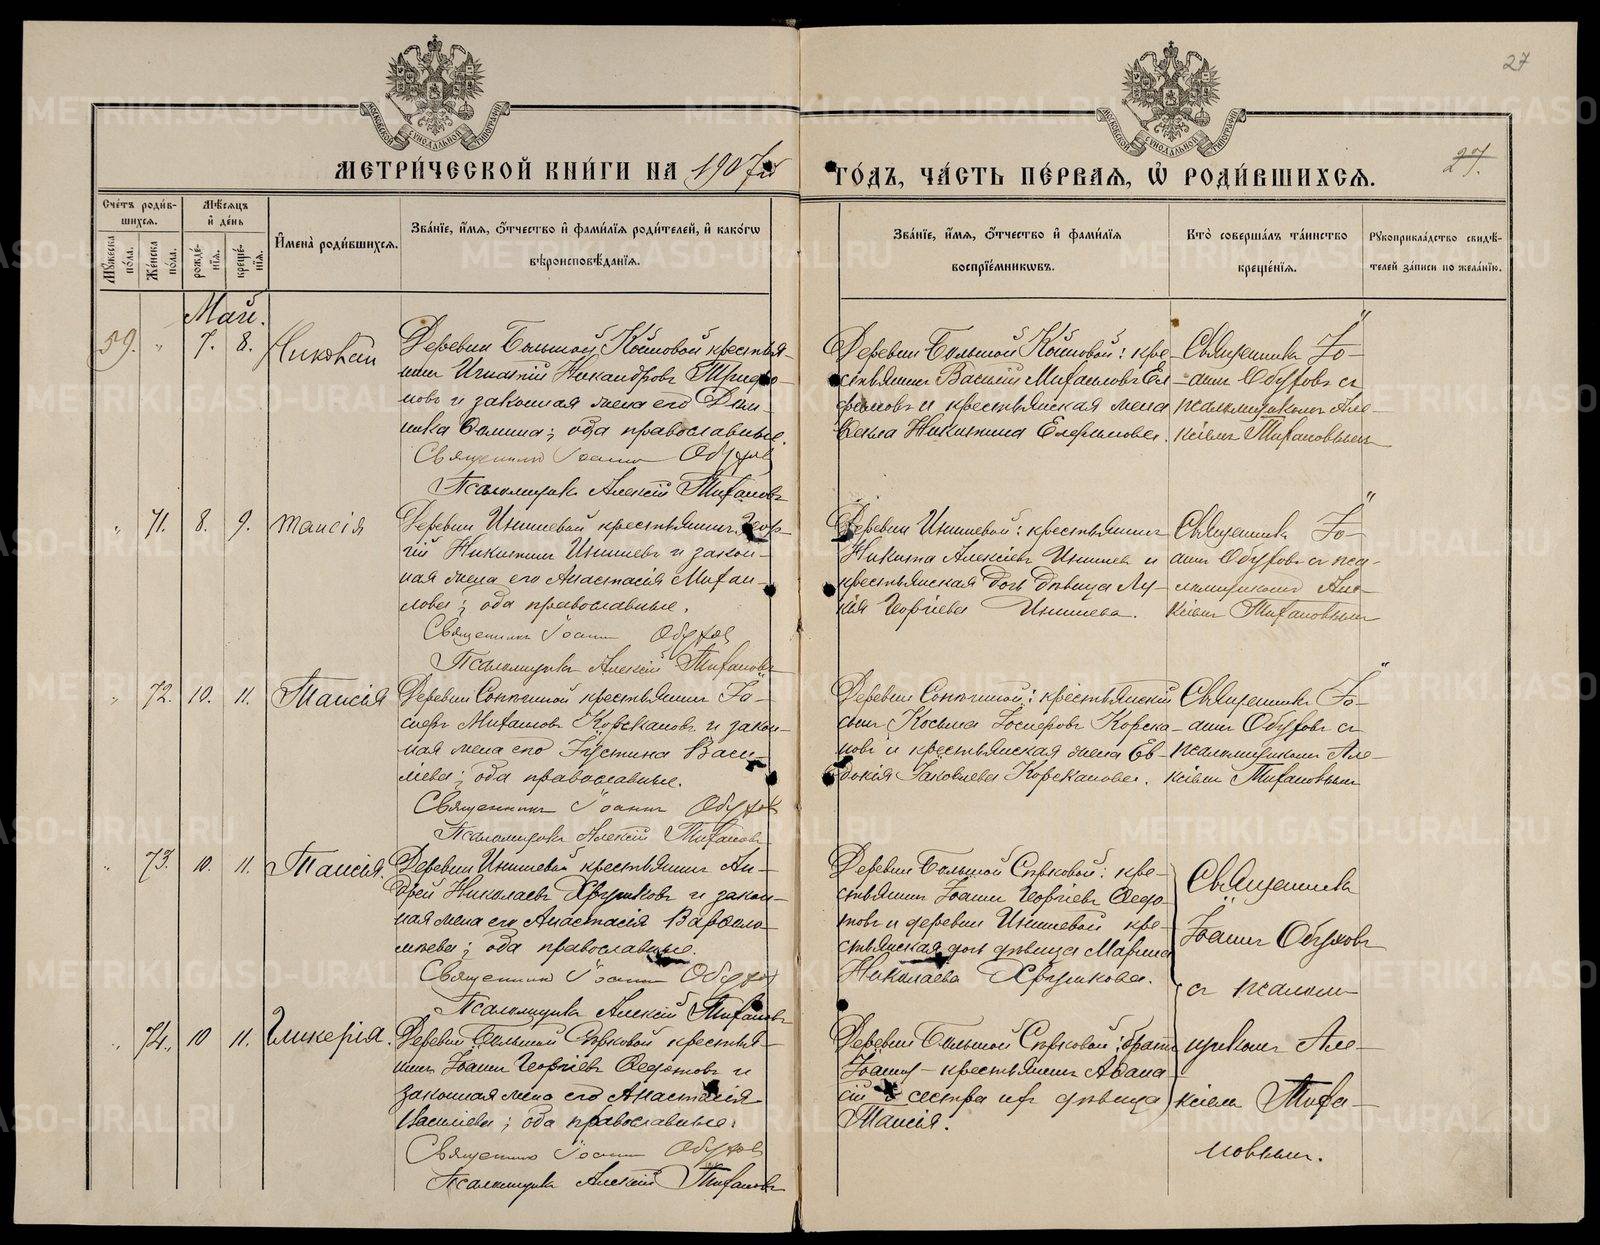 27
27.
МЕТРИ́ЧЕСКОЙ КНИ́ГИ НА 1907й
ГО́ДЪ, ЧА́СТЬ ПЕ́РВАЯ, Ѡ РОДИ́ВШИХСЯ.
Сче́тъ роди́в-
шихся.
Мѣ́сяцъ
и҆ де́нь
Му́жеска по́ла.
Же́нска по́ла.
рожде́-
нїя.
креще́-
нїя.
И҆мена̀ роди́вшихся.
Зва́нїе, и҆́мя, ѻ҆́тчество и҆ фами́лїя роди́телей, и҆ како́гѡ
вѣроисповѣ́данїя.
Зва́нїе, и҆́мя, ѻ҆́тчество и҆ фами́лїя
воспрїе́мникѡвъ.
Кто̀ соверша́лъ та́инство
креще́нїя.
Рукоприкла́дство свидѣ́-
телей за́писи по жела́нїю.
Май.
59. " 7. 8. Николай
Деревни Большой Кошовой крестья-
нинъ Игнатій Никандровъ Трифо-
новъ и законная жена его Дом-
ника Фомина; оба православные.
Священникъ Іоаннъ Обуховъ
Псаломщикъ Алексій Тихановъ
Деревни Большой Кошовой: кре-
стьянинъ Василій Михаиловъ Ел-
фимовъ и крестьянская жена
Фекла Никитина Елфимова.
Священникъ Іо-
аннъ Обуховъ съ
псаломщикомъ Але-
ксіемъ Тихановымъ
" 71. 8. 9. Таисія
Деревни Инишевой крестьянинъ Геор-
гій Никитинъ Инишевъ и закон-
ная жена его Анастасія Михаи-
лова; оба православные.
Священникъ Іоаннъ Обуховъ
Псаломщикъ Алексій Тихановъ
Деревни Инишевой: крестьянинъ
Никита Алексіевъ Инишевъ и
крестьянская дочь девица Лу-
кія Георгіева Инишева.
Священникъ Іо-
аннъ Обуховъ съ пса-
ломщикомъ Але-
ксіемъ Тихановымъ
" 72. 10. 11. Таисія
Деревни Сопочиной крестьянинъ Га-
Михаиловъ Корскановъ и закон-
ная жена его Іустина Васи-
лиева; оба православные.
Священникъ Іоаннъ Обуховъ
Псаломщикъ Алексій Тихановъ
крестьянскій
сынъ Косьма Корска-
новъ и крестьянская жена Ев-
докія Іаковлева Корсканова.
Священникъ Іо-
аннъ Обуховъ съ
псаломщикомъ Але-
ксіемъ Тихановымъ
" 73. 10. 11. Таисія.
Деревни Инишевой крестьянинъ Ан-
дрей Николаевъ Хрушковъ и закон-
ная жена его Анастасія Варѳоло-
меева; оба православные.
Священникъ Іоаннъ Обуховъ
Псаломщикъ Алексій Тихановъ
Деревни Большой Сѣрковой: кре-
стьянинъ Іоаннъ Георгіевъ Ѳедо-
товъ и деревни Инишевой кре-
стьянская дочь девица Марина
Николаева Хрушкова.
Священникъ
Іоаннъ Обуховъ
съ псалом-
щикомъ Але-
ксіемъ Тиха-
новымъ.
" 74. 10 11. Гликерія.
Деревни Большой Сѣрковой крестья-
нинъ Іоаннъ Георгіевъ Ѳедотовъ и
законная жена его Анастасія
Василіева; оба православные.
Священникъ Іоаннъ Обуховъ
Псаломщикъ Алексій Тихановъ
Деревни Большой Сѣрковой: братъ
крестьянинъ Аѳана-
сій и сестра ихъ девица
Таисія.